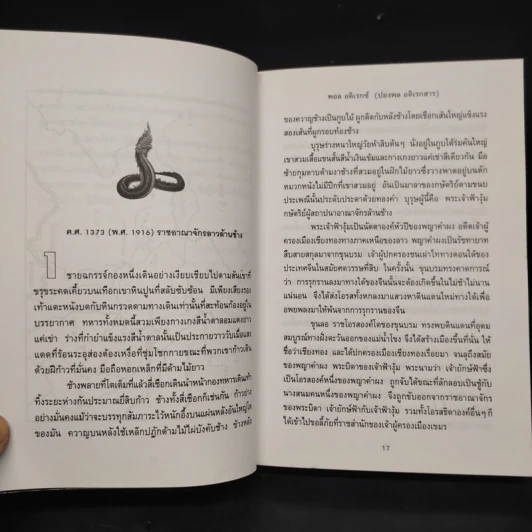 ค.ศ. 1373 (พ.ศ. 1916) ราชอาณาจักรลาวล้านช้าง
1
ชายฉกรรจ์กองหนึ่งเดินอย่างเงียบเชียบไปตามสันเขาที่
ขรุขระคดเคี้ยวบนเทือกเขาหินปูนที่สลับซับซ้อน มีเพียงเสียงรอง
เท้าแตะหนังบดกับหินกรวดตามทางเดินเท่านั้นที่สะท้อนก้องอยู่ใน
บรรยากาศ ทหารทั้งหมดนี้สวมเพียงกางเกงสีน้ำตาลอมแดงยาว
แค่เข่า ร่างที่กำยำแข็งแรงสีน้ำตาลนั้นเป็นประกายวาววับเมื่อแสง
แดดที่ร้อนระอุส่องต้องเหงื่อที่ชุ่มโชกกายขณะที่พวกเขาก้าวเดิน
ด้วยฝีก้าวที่มั่นคง มือถือหอกเหล็กที่มีด้ามไม้ยาว
ช้างพลายที่โตเต็มที่แล้วสี่เชือกเดินนำหน้ากองทหารเดินเท้า
ทิ้งระยะห่างกันประมาณยี่สิบก้าว ช้างทั้งสี่เชือกก็เช่นกัน ก้าวย่าง
อย่างมั่นคงแม้ว่าจะบรรทุกสัมภาระไว้หนักอึ้งบนแผ่นหลังอันใหญ่โต
ของมัน ควาญบนหลังใช้เหล็กปฏักด้ามไม้ไผ่บังคับช้าง ช้างพลัง
พอล อดิเรกซ์ (ปองพล อดิเรกสาร)
ของควาญช้างเป็นกูบไม้ ผูกติดกับหลังช้างโดยเชือกเส้นใหญ่แข็งแรง
สองเส้นที่ผูกรอบท้องช้าง
บุรุษร่างหนาใหญ่วัยห้าสิบต้นๆ นั่งอยู่ในกูบใต้ร่มคันใหญ่
เขาสวมเสื้อแขนสั้นสีน้ำเงินเข้มและกางเกงยาวแค่เข่าสีเดียวกัน มือ
ซ้ายกุมดาบด้ามงาช้างที่สวมอยู่ในฝักไม้ยาวซึ่งวางพาดอยู่บนตัก
หมวกหนังไม่มีปีกที่เขาสวมอยู่ อันเป็นมาลาของกษัตริย์ตามขนบ
ประเพณีนั้นประดับประดาด้วยทองคำ บุรุษผู้นี้คือ พระเจ้าฟ้างุ้ม
กษัตริย์ผู้สถาปนาอาณาจักรล้านช้าง
พระเจ้าฟ้างุ้มเป็นนัดดาองค์หัวปีของพญาคำผง อดีตเจ้าผู้
ครองเมืองเชียงทองทางภาคเหนือของลาว พญาคำผงเป็นรัชทายาท
สืบสายสกุลมาจากขุนบรม เจ้าผู้ปกครองชนเผ่าไททางตอนใต้ของ
ประเทศจีนในสมัยศตวรรษที่สิบ ในครั้งนั้น ขุนบรมทรงคาดการณ์
ว่า การรุกรานลงมาทางใต้ของจีนนั้นจะต้องเกิดขึ้นในไม่ช้าไม่นาน
แน่นอน จึงได้ส่งโอรสทั้งหกลงมาแสวงหาดินแดนใหม่ทางใต้เพื่อ
อพยพลงมาให้พ้นจากการรุกรานของจีน
ขุนลอ ราชโอรสองค์โตของขุนบรม ทรงพบดินแดนที่อุดม
สมบูรณ์ทางฝั่งตะวันออกของแม่น้ำโขง จึงได้สร้างเมืองขึ้นที่นั่น ให้
ชื่อว่าเชียงทอง และได้ปกครองเมืองเชียงทองเรื่อยมา จนลุถึงสมัย
ของพญาคำผง พระบิดาของเจ้าฟ้างุ้ม พระนามว่า เจ้ายักษ์ฟ้าซึ่ง
เป็นโอรสองค์หนึ่งของพญาคำผง ถูกจับได้ขณะที่ลักลอบเป็นชู้กับ
นางสนมคนหนึ่งของพญาคำผง จึงถูกขับออกจากราชอาณาจักร
ของพระบิดา เจ้ายักษ์ฟ้ากับเจ้าฟ้างุ้ม รวมทั้งโอรสธิดาองค์อื่นๆ ก็
ได้เข้าไปขอลี้ภัยที่ราชสำนักของเจ้าผู้ครองเมืองเขมร
17